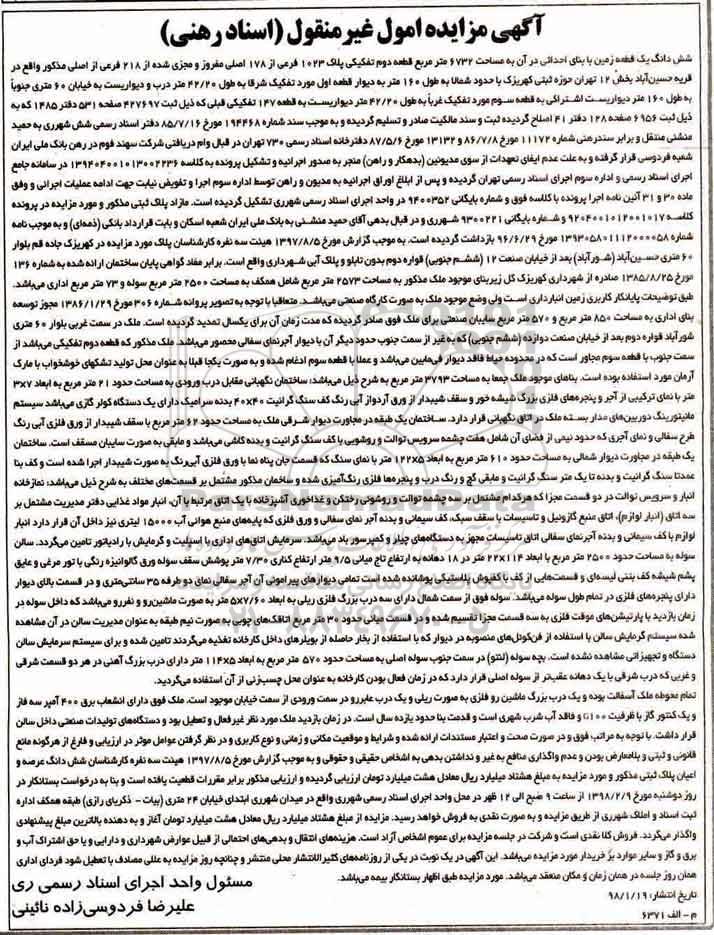 آگهی مزایده اموال غیر منقول (اسناد رهنی)
شش دانگ یک قطعه زمین با بنای احداثی در آن به مساحت ۶۷۳۲ متر مربع قطعه دوم تفکیکی پلاک ۱۰۲۳ فرعی از ۱۷۸ اصلی مفروز و مجزی شده از ۲۱۸ فرعی از اصلی مذکور واقع در
قریه حسین‌آباد بخش ۱۲ تهران حوزه ثبتی کهریزک با حدود شمالا به طول ۱۶۰ متر به دیوار قطعه اول مورد تفکیک شرقا به طول ۴۲/۲۰ متر درب و دیواریست به خیابان ۶۰ متری جنوباً
به طول ۱۶۰ متر دیواریست اشتراکی به قطعه سوم مورد تفکیک غرباً به طول ۴۲/۲۰ متر دیواریست به قطعه ۱۴۷ تفکیکی قبلی که ذیل ثبت ۴۲۷۶۹۷ صفحه ۵۳۱ دفتر ۱۴۸۵ که به
ذیل ثبت ۶۹۵۶ صفحه ۱۲۸ دفتر ۴۱ اصلاح گردیده ثبت و سند مالکیت صادر و تسلیم گردیده و به موجب سند شماره ۱۹۴۴۶۸ مورخ ۸۵/۷/۱۶ دفتر اسناد رسمی شش شهرری به حمید
منشئی منتقل و برابر سندرهنی شماره ۱۱۱۷۲ مورخ ۸۶/۷/۸ و ۱۳۱۳۲ مورخ ۸۷/۵/۶ دفترخانه اسناد رسمی ۷۳۰ تهران در قبال وام دریافتی شرکت سهند فوم در رهن بانک ملی ایران
شعبه فردوسی قرار گرفته و به علت عدم ایفای تعهدات از سوی مدیونین (بدهکار و راهن) منجر به صدور اجرائیه و تشکیل پرونده به کلاسه ۱۳۹۴۰۴۰۰۱۰۱۳۰۰۲۲۳۶ در سامانه جامع
اجرای اسناد رسمی و اداره سوم اجرای اسناد رسمی تهران گردیده و پس از ابلاغ اوراق اجرائیه به مدیون و راهن توسط اداره سوم اجرا و تفویض نیابت جهت ادامه عملیات اجرائی و وفق
ماده ۳۰ و ۳۱ آئین نامه اجرا پرونده با کلاسه فوق و شماره بایگانی ۹۴۰۰۳۵۲ در واحد اجرای اسناد رسمی شهرری تشکیل گردیده است. مازاد پلاک ثبتی مذکور و مورد مزایده در پرونده
کلاسه ۹۲۰۴۰۰۱۰۱۲۰۰۱۰۱۷ و شماره بایگانی ۹۳۰۰۲۲۱ شهرری و در قبال بدهی آقای حمید منشئی به بانک ملی ایران شعبه اسکان و بابت قرارداد بانکی (ذمه‌ای) و به موجب نامه
شماره ۱۳۹۳۰۵۸۰۱۱۱۲۰۰۰۰۵۸ مورخ ۹۶/۶/۲۹ بازداشت گردیده است. به موجب گزارش مورخ ۱۳۹۷/۸/۵ هیئت سه نفره کارشناسان پلاک مورد مزایده در کهریزک جاده قم بلوار
۶۰ متری حسین‌آباد (شورآباد) بعد از خیابان صنعت ۱۲ (ششم جنوبی) قواره دوم بدون تابلو و پلاک آبی شهرداری واقع است. برابر مفاد گواهی پایان ساختمان ارائه شده به شماره ۱۳۶
مورخ ۱۳۸۵/۸/۲۵ صادره از شهرداری کهریزک کل زیربنای موجود ملک مذکور به مساحت ۲۵۷۳ متر مربع شامل همکف به مساحت ۲۵۰۰ متر مربع سوله و ۷۳ متر مربع اداری می‌باشد.
طبق توضیحات پایانکار کاربری زمین انبارداری است ولی وضع موجود ملک به صورت کارگاه صنعتی می‌باشد. متعاقبا با توجه به تصویر پروانه شماره ۳۰۶ مورخ ۱۳۸۶/۱/۲۹ مجوز توسعه
بنای اداری به مساحت ۸۵۰ متر مربع و ۵۷۰ متر مربع سایبان صنعتی برای ملک فوق صادر گردیده که مدت زمان آن برای یکسال تمدید گردیده است. ملک در سمت غربی بلوار ۶۰ متری
شورآباد قواره دوم بعد از خیابان صنعت دوازده (ششم جنوبی) که به غیر از سمت جنوب حدود دیگر آن با دیوار آجرنمای سفالی محصور می‌باشد. ملک مذکور که قطعه دوم تفکیکی می‌باشد از
سمت جنوب با قطعه سوم مجاور است که در محدوده حیاط فاقد دیوار فی‌مابین می‌باشد و عملا با قطعه سوم ادغام شده و به صورت یکجا قبلا به عنوان محل تولید تشکهای خوشخواب با مارک
آرمان مورد استفاده بوده است. بناهای موجود ملک جمعا به مساحت ۳۷۹۳ متر مربع به شرح ذیل می‌باشد: ساختمان نگهبانی مقابل درب ورودی به مساحت حدود ۲۱ متر مربع به ابعاد ۳x۷
متر با نمای ترکیبی از آجر و پنجره‌های فلزی بزرگ شیشه خور و سقف شیبدار از ورق آردواز آبی رنگ کف سنگ گرانیت ۴۰x۴۰ بدنه سرامیک دارای یک دستگاه کولر گازی می‌باشد سیستم
مانیتورینگ دوربین‌های مدار بسته ملک در اتاق نگهبانی قرار دارد. ساختمان یک طبقه در مجاورت دیوار شرقی ملک به مساحت حدود ۶۲ متر مربع با سقف شیبدار از ورق فلزی آبی رنگ
طرح سفالی و نمای آجری که حدود نیمی از فضای آن شامل هفت چشمه سرویس توالت و روشویی با کف سنگ گرانیت و بدنه کاشی می‌باشد و مابقی به صورت سایبان مسقف است. ساختمان
یک طبقه در مجاورت دیوار شمالی به مساحت حدود ۶۱۰ متر مربع به ابعاد ۱۲۲x۵ متر با نمای سنگ که قسمت جان پناه نما با ورق فلزی آبی‌رنگ به صورت شیبدار اجرا شده است و کف بنا
عمدتا سنگ گرانیت و بدنه تا یک متر سنگ گرانیت و مابقی گچ و رنگ درب و پنجره‌ها فلزی رنگ‌آمیزی شده و ساختمان مذکور مشتمل بر قسمت‌های مختلف به شرح ذیل می‌باشد: نمازخانه
انبار و سرویس توالت در دو قسمت مجزا که هرکدام مشتمل بر سه چشمه توالت و روشوئی رختکن و غذاخوری آشپزخانه با یک اتاق مرتبط با آن، انبار مواد غذایی دفتر مدیریت مشتمل بر
سه اتاق (انبار لوازم)، اتاق منبع گازوئیل و تاسیسات با سقف سبک، کف سیمانی و بدنه آجر نمای سفالی و ورق فلزی که پایه‌های منبع هوائی آب ۱۵۰۰۰ لیتری نیز داخل آن قرار دارد انبار
لوازم با کف سیمانی و بدنه آجرنمای سفالی اتاق تاسیسات مجهز به دستگاه‌های چیلر و کمپرسور باد می‌باشد. سرمایش اتاق‌های اداری با اسپلیت و گرمایش با رادیاتور تامین می‌گردد. سالن
سوله به مساحت حدود ۲۵۰۰ متر مربع با ابعاد ۲۲x۱۱۴ متر در ۱۸ دهانه به ارتفاع تاج میانی ۹/۵ متر ارتفاع کناری ۷/۳۰ متر پوشش سقف سوله ورق گالوانیزه رنگی با تور مرغی و عایق
پشم شیشه کف بتنی لیسه‌ای و قسمت‌هایی از کف با کفپوش پلاستیکی پوشانده شده است تمامی دیوارهای پیرامونی آن آجر سفالی نمای دو طرفه ۳۵ سانتی‌متری و در قسمت بالای دیوار
دارای پنجره‌های فلزی در تمام طول سوله می‌باشد. سوله فوق از سمت شمال دارای سه درب بزرگ فلزی ریلی به ابعاد ۵x۷/۶۰ متر به صورت ماشین‌رو و نفررو می‌باشد که داخل سوله در
زمان بازدید با پارتیشن‌های موقت فلزی به سه قسمت مجزا تقسیم شده و در قسمت میانی حدود ۳۰ متر مربع اتاقک‌های چوبی به صورت نیم طبقه به عنوان مدیریت سالن در آن مشاهده
شده سیستم گرمایش سالن با استفاده از فن‌کوئل‌های منصوبه در دیوار که با استفاده از بخار حاصله از بویلرهای داخل کارخانه تغذیه می‌گردند تامین شده و برای سیستم سرمایش سالن
دستگاه و تجهیزاتی مشاهده نشده است. بچه سوله (لنتو) در سمت جنوب سوله اصلی به مساحت حدود ۵۷۰ متر مربع به ابعاد ۱۱۴x۵ متر دارای درب بزرگ آهنی در هر دو قسمت شرقی
و غربی که درب شرقی با یک دهانه عقب‌تر از سوله اصلی قرار دارد که در زمان فعال بودن کارخانه به عنوان محل چسب‌زنی از آن استفاده می‌گردید.
تمام محوطه ملک آسفالت بوده و یک درب بزرگ ماشین رو فلزی به صورت ریلی و یک درب عابررو در سمت ورودی از سمت خیابان موجود است. ملک فوق دارای انشعاب برق ۴۰۰ آمپر سه فاز
و یک کنتور گاز با ظرفیت G۱۰۰ و فاقد آب شرب شهری است و قدمت بنا حدود یازده سال است. در زمان بازدید ملک مورد نظر غیرفعال و تعطیل بود و دستگاه‌های تولیدات صنعتی داخل سالن
قرار داشت. با توجه به مراتب فوق و در صورت صحت و اعتبار مستندات ارائه شده و شرایط و موقعیت مکانی و زمانی و نوع کاربری و در نظر گرفتن عوامل موثر در ارزیابی و فارغ از هرگونه مانع
قانونی و ثبتی و بلامعارض بودن و عدم واگذاری منافع به غیر و نداشتن بدهی به اشخاص حقیقی و حقوقی و به موجب گزارش مورخ ۱۳۹۷/۸/۵ هیئت سه نفره کارشناسان شش دانگ عرصه و
اعیان پلاک ثبتی مذکور و مورد مزایده به مبلغ هشتاد میلیارد ریال معادل هشت میلیارد تومان ارزیابی گردیده و ارزیابی مذکور برابر مقررات قطعیت یافته است و بنا به درخواست بستانکار در
روز دوشنبه مورخ ۱۳۹۸/۲/۹ از ساعت ۹ صبح الی ۱۲ ظهر در محل واحد اجرای اسناد رسمی شهرری واقع در میدان شهرری ابتدای خیابان ۲۴ متری (بیات - ذکریای رازی) طبقه همکف اداره
ثبت اسناد و املاک شهرری از طریق مزایده و به صورت نقدی به فروش خواهد رسید. مزایده از مبلغ هشتاد میلیارد ریال معادل هشت میلیارد تومان آغاز و به دهنده بالاترین مبلغ پیشنهادی
واگذار می‌گردد. فروش کلا نقدی است و شرکت در جلسه مزایده برای عموم اشخاص آزاد است. هزینه‌های انتقال و بدهی‌های احتمالی از قبیل عوارض شهرداری و دارایی و یا حق اشتراک آب و
برق و گاز و سایر موارد بر خریدار مورد مزایده می‌باشد. این آگهی در یک نوبت در یکی از روزنامه‌های کثیرالانتشار محلی منتشر و چنانچه روز مزایده به عللی مصادف با تعطیل شود فردای اداری
همان روز جلسه در همان زمان و مکان منعقد می‌باشد. مورد مزایده طبق اظهار بستانکار بیمه می‌باشد.
تاریخ انتشار: ۹۸/۱/۱۹
م - الف ۶۳۷۱
مسئول واحد اجرای اسناد رسمی ری
علیرضا فردوسی‌زاده نائینی